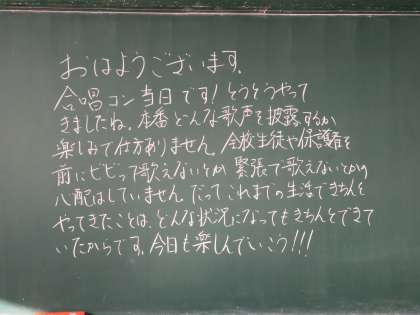 おはようございます。
合唱コン当日です！とうとうやって
きましたね。本番どんな歌声を披露するか
楽しみで仕方ありません。全校生徒や保護者を
前にビビって歌えないとか 緊張で歌えないとかの
心配はしていません。だってこれまでの生活できちんと
やってきたことは、どんな状況になってもきちんとできて
いたからです。今日も楽しんでいこう！！！